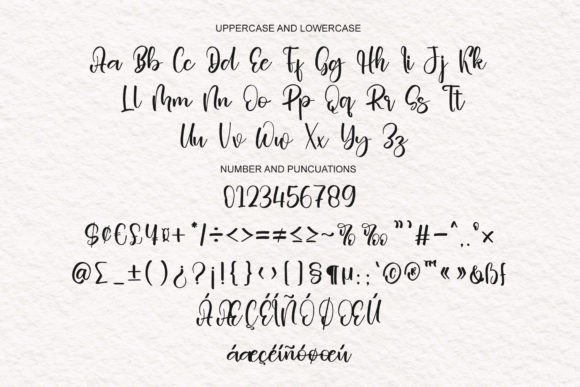 UPPERCASE AND LOWERCASE
Aa Bb Cc Dd Ee Ff Gg Hh Ii Jj Kk
Ll Mm Nn Oo Pp Qq Rr Ss Tt
Uu Vv Ww Xx Yy Zz
NUMBER AND PUNCUATIONS
0123456789
$¢€£¥¤+*/÷<>=≠≤≥~%‰"'#-^.,°×
@∑_±()¿?¡!{}‹›[]§¶µ:;‘©®™«»&ßƒ
ÁÆÇÉÍÑÓØŒÚ
áæçéíñóøœú